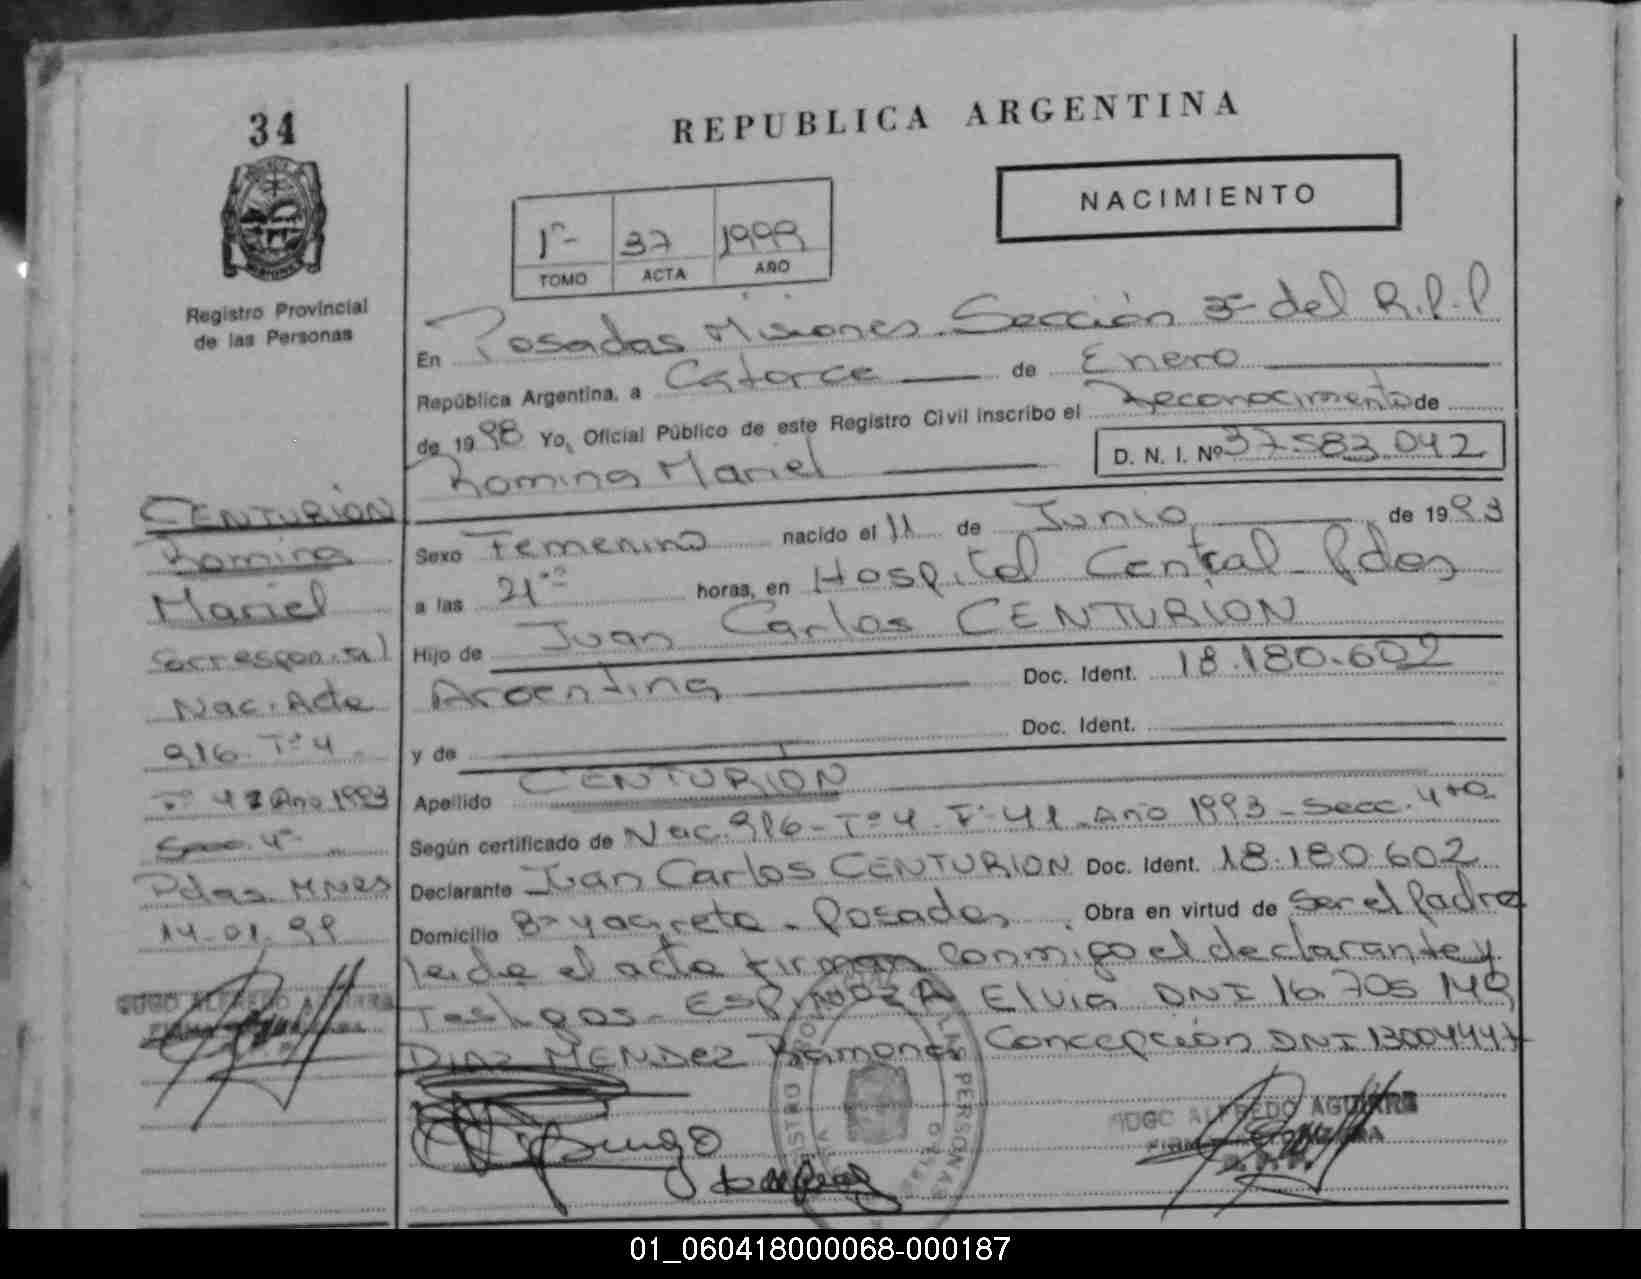 34
REPUBLICA ARGENTINA
NACIMIENTO
1º- 37 1999
TOMO ACTA AÑO
Registro Provincial
de las Personas
En Posadas Misiones Sección 3º del R.P.P
República Argentina, a Catorce de Enero
de 1998 Yo, Oficial Público de este Registro Civil inscribo el Reconocimiento de
Romina Mariel D. N. I. Nº 37.583.042
Sexo Femenino nacido el 11 de Junio de 1993
a las 21 horas, en Hospital Central Pdas
Hijo de Juan Carlos CENTURION
Argentina Doc. Ident. 18.180.602
y de Doc. Ident.
Apellido CENTURION
Según certificado de Nac. 916 - Tº 4 - Fº 41 - Año 1993 - Secc. 4ta
Declarante Juan Carlos CENTURION Doc. Ident. 18.180.602
Domicilio Bº Yacyreta - Posadas Obra en virtud de Ser el Padre
leida el acta firman conmigo el declarante y
Testigos - ESPINOZA Elvia DNI 16.705.
DIAZ MENDEZ Ramona Concepción DNI 13004447
CENTURION
Romina
Mariel
Corresponsal
Nac. Acta
916. Tº 4
Año 1993
Secc. 4º
Pdas. MNES
14-01-99
HUGO ALFREDO AGUIRRE
HUGO ALFREDO AGUIRRE
FIRMA AUTORIZADA
01_060418000068-000187